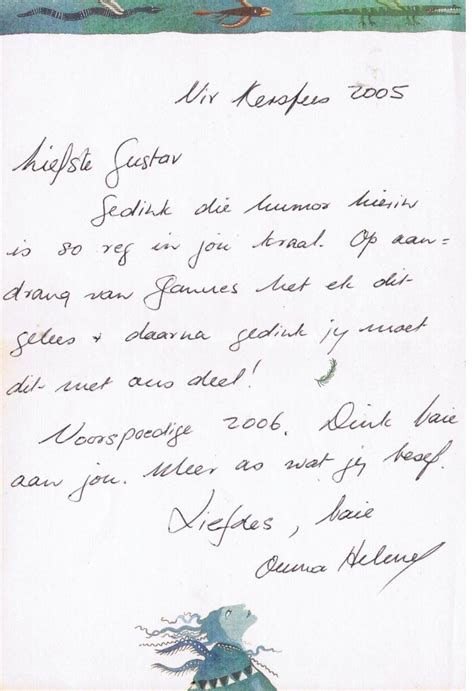 Vir Kersfees 2005
Liefste Gustav
Gedink die humor hierin
is so reg in jou kraal. Op aan=
drang van Hannes het ek dit
gelees + daarna gedink jy moet
dit met ons deel!
Voorspoedige 2006. Dink baie
aan jou. Meer as wat jy besef.
Liefdes, baie
Ouma